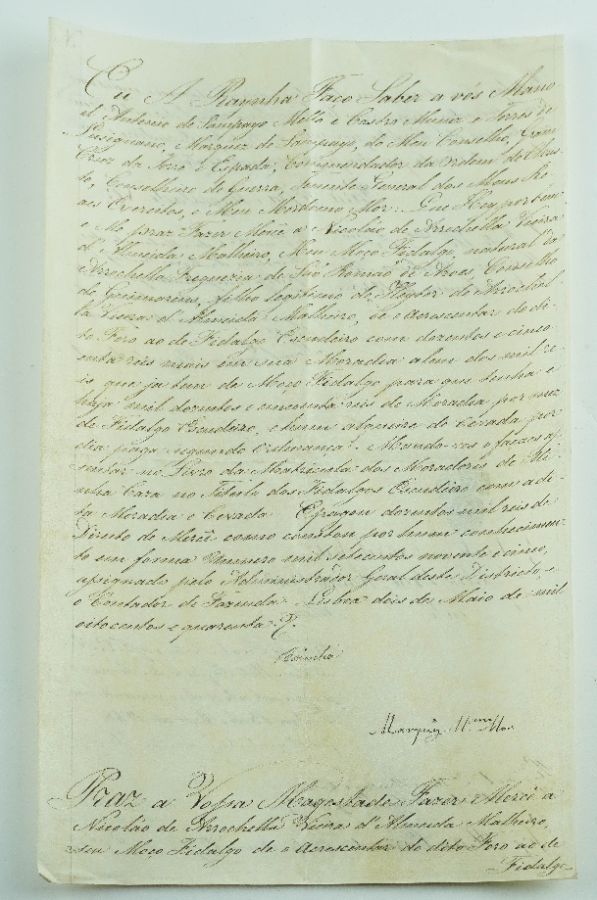 Eu A Raynha Faço Saber a vós Mano
el Antonio de Sampayo Mello e Castro Muniz e Torres de
Lusignano, Marquez de Sampayo, do Meu Conselho, Gram
Cruz da Torre e Espada, Commendador da Ordem de Chris
to, Conselheiro de Guerra, Tenente General dos Meus Re
aes Exercitos, e Meu Mordomo Mor: Que Hey por bem
e Me praz Fazer Mercê a Nicoláo de Arrochella Vieira
d'Almeida Malheiro, Meu Moço Fidalgo, natural da
Arrochella Freguezia de São Romão de Aroes, Conselho
de Guimarães, filho legitimo de Heytor de Arrochel
la Vieira d'Almeida Malheiro, de o Acrescentar do di
to Foro ao de Fidalgo Escudeiro com dozentos e cinco
enta reis mais em sua Moradia alem dos mil re
is que ja tem de Moço Fidalgo para que tenha e
haja mil dozentos e cincoenta reis de Moradia por mez
de Fidalgo Escudeiro, e hum alqueire de Cevada por
dia paga segundo Ordenança. Mando-vos o façaes as
sentar no Livro da Matricula dos Moradores da Mi
nha Caza no Titulo dos Fidalgos Escudeiro com a di
ta Moradia e Cevada. E pagou dozentos mil reis de
Direito de Mercê como constou por hum conhecimen
to em forma Numero mil setecentos noventa e cinco,
assignado pelo Administrador Geral deste Districto, e
o Contador de Fazenda. Lisboa dois de Maio de mil
oitocentos e quarenta
Rainha
Marquez M.mo Mor
Praz a Vossa Magestade Fazer Mercê a
Nicoláo de Arrochella Vieira d'Almeida Malheiro,
seu Moço Fidalgo de o Acrescentar do dito Foro ao de
Fidalgo